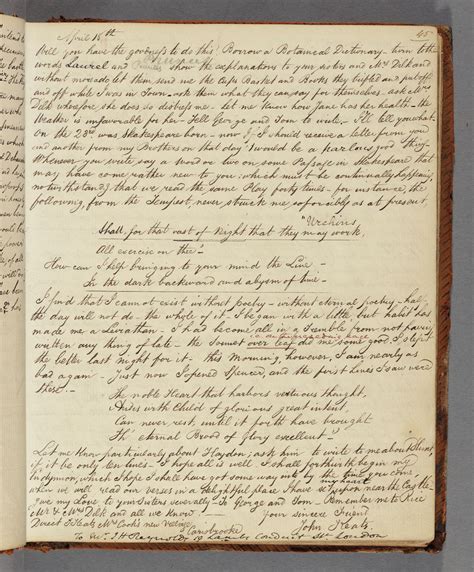 45
April 18th
Will you have the goodness to do this? Borrow a Botanical Dictionary - turn to the
words Laurel and Prunus show the explanations to your sisters and Mrs Dilk and
without more ado let them send me the Cups Basket and Books they trifled and put off
and off while I was in Town - ask them what they can say for themselves - ask Mrs
Dilk wherefore she does so distress me - Let me know how Jane has her health - the
Weather is unfavorable for her - Tell George and Tom to write. I'll tell you what -
on the 23rd was Shakespeare born - now If I should receive a letter from you
and another from my Brothers on that day 'twould be a parlous good thing -
Whenever you write say a Word or two on some Passage in Shakespeare that
may have come rather new to you; which must be continually happening,
notwithstandg that we read the same Play forty times - for instance, the
following, from the Tempest, never struck me so forcibly as at present,
"Urchins
Shall, for that vast of Night that they may work,
All exercise on thee -
How can I help bringing to your mind the Line -
In the dark backward and abysm of time -
I find that I cannot exist without poetry - without eternal poetry - half
the day will not do - the whole of it - I began with a little, but habit has
made me a Leviathan - I had become all in a Tremble from not having
written any thing of late - the Sonnet over leaf did me some good. I slept
the better last night for it - this Morning, however, I am nearly as
bad again - Just now I opened Spencer, and the first Lines I saw were
these. -
The noble Heart that harbors virtuous thought,
And is with Child of glorious great intent,
Can never rest, until it forth have brought
Th' eternal Brood of Glory excellent -
Let me know particularly about Haydon; ask him to write to me about Hunt,
if it be only ten lines - I hope all is well - I shall forthwith begin my
Endymion, which I hope I shall have got some way into by the time you come,
when we will read our verses in a delightful place I have set my heart upon near the Castle -
Give my Love to your Sisters severally - To George and Tom - Remember me to Rice
Mr & Mrs Dilk and all we know.
Your sincere Friend
John Keats.
Direct J. Keats Mrs Cook's new Village
Carisbrooke
To Mr. J H Reynolds 19 Lambs Conduit St. London